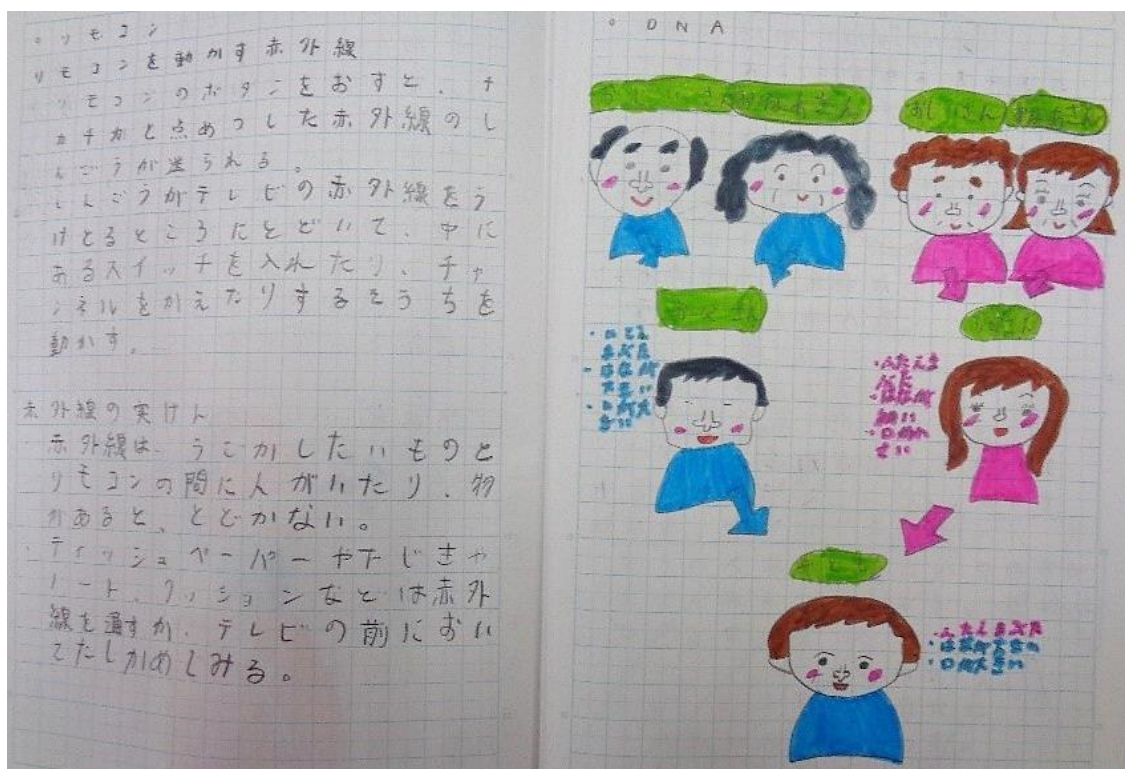 。リモコン
リモコンを動かす赤外線
リモコンのボタンをおすと、チ
カチカと点めつした赤外線のし
んごうが送られる。
しんごうがテレビの赤外線をう
けとるところにとどいて、中に
あるスイッチを入れたり、チャ
ンネルをかえたりするそうちを
動かす。
赤外線の実けん
赤外線は、うごかしたいものと
リモコンの間に人がいたり、物
があると、とどかない。
・ティッシュペーパーや下じきや
ノート、クッションなどは赤外
線を通すか、テレビの前におい
てたしかめしみる。
。DNA
おじいさん
おばあさん
おじいさん
おばあさん
お父さん
・ひとえ
まぶた
・はなが
・口が大
きい
・ふたえま
ぶた
・はなが
細い
・口が小
さい
・ふたえまぶた
・はなが
・口が大きい